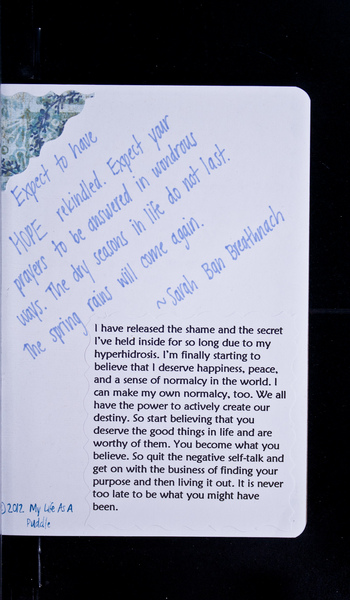 Expect to have
HOPE rekindled. Expect your
prayers to be answered in wondrous
ways. The dry seasons in life do not last.
The spring rains will come again.
~ Sarah Ban Breathnach
I have released the shame and the secret
I've held inside for so long due to my
hyperhidrosis. I'm finally starting to
believe that I deserve happiness, peace,
and a sense of normalcy in the world. I
can make my own normalcy, too. We all
have the power to actively create our
destiny. So start believing that you
deserve the good things in life and are
worthy of them. You become what you
believe. So quit the negative self-talk and
get on with the business of finding your
purpose and then living it out. It is never
too late to be what you might have
been.
©2012 My Life As A
Puddle